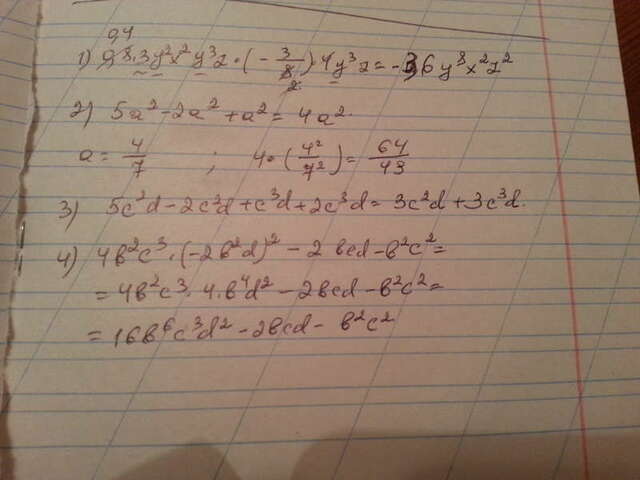 1) 0,8·3y²x²y³z·(-3/8)·4y³z=-3,6y⁸x²z²
2) 5a²-2a²+a²=4a².
a=4/7 ; 4·(4²/7²)=64/49
3) 5c²d-2c²d+c³d+2c³d=3c²d+3c³d.
4) 4b²c³·(-2b²d)²-2bcd-b²c²=
=4b²c³·4·b⁴d²-2bcd-b²c²=
=16b⁶c³d²-2bcd-b²c²